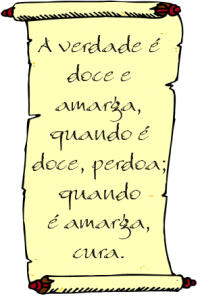 A verdade é
doce e
amarga,
quando é
doce, perdoa;
quando
é amarga,
cura.